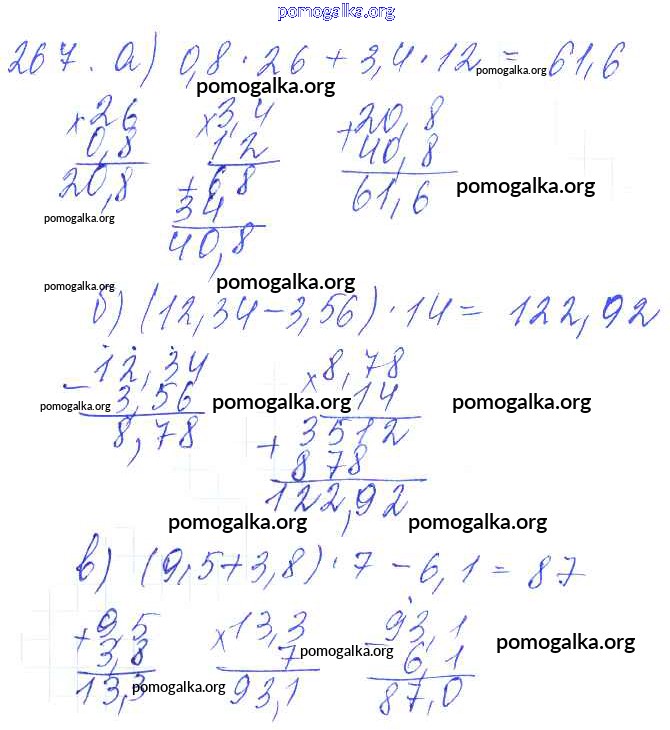 pomogalka.org
267. а) 0,8 · 26 + 3,4 · 12 = 61,6
pomogalka.org pomogalka.org
× 26 × 3,4 + 20,8
0,8 12 40,8
20,8 + 68 61,6 pomogalka.org
pomogalka.org 34
40,8
pomogalka.org pomogalka.org
б) (12,34 – 3,56) · 14 = 122,92
– 12,34 × 8,78
pomogalka.org 3,56 pomogalka.org 14 pomogalka.org
8,78 + 3512
878
122,92
pomogalka.org pomogalka.org
в) (9,5 + 3,8) · 7 – 6,1 = 87
+ 9,5 × 13,3 – 93,1 pomogalka.org
3,8 7 pomogalka.org 6,1
13,3 pomogalka.org 93,1 87,0